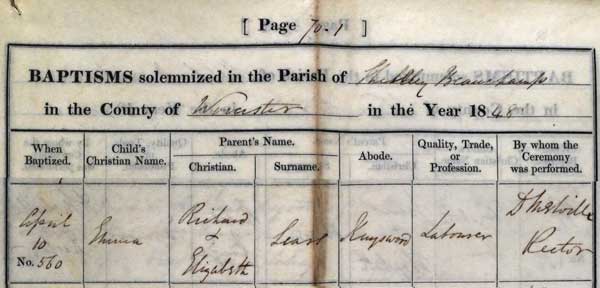 [ Page 70. 1 ]
BAPTISMS solemnized in the Parish of Shelsley Beauchamp
in the County of Worcester in the Year 1848
When Baptized.
Child's Christian Name.
Parent's Name.
Christian.
Surname.
Abode.
Quality, Trade, or Profession.
By whom the Ceremony was performed.
April 10
No. 560
Emma
Richard & Elizabeth
Labourer
D Melville Rector